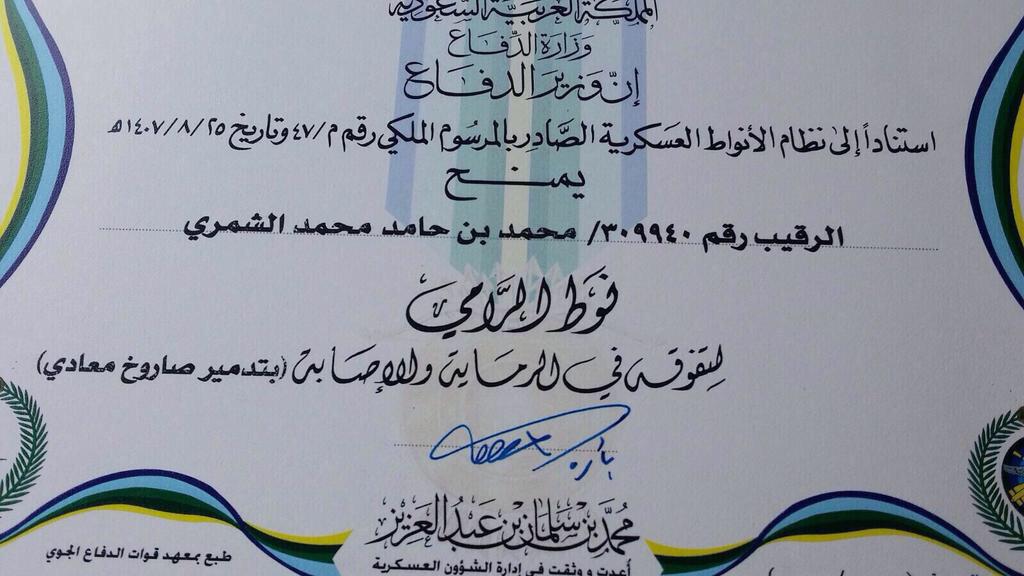 المملكة العربية السعودية
وزارة الدفاع
إن وزير الدفاع
استناداً إلى نظام الأنواط العسكرية الصادر بالمرسوم الملكي رقم م/٤٧ وتاريخ ١٤٠٧/٨/٢٥هـ
يمنح
الرقيب رقم ٣٠٩٩٤٠/ محمد بن حامد محمد الشمري
نوط الرامي
لتفوقه في الرماية والإصابة (بتدمير صاروخ معادي)
محمد بن سلمان بن عبد العزيز
أعدت و وثقت في إدارة الشؤون العسكرية
طبع بمعهد قوات الدفاع الجوي